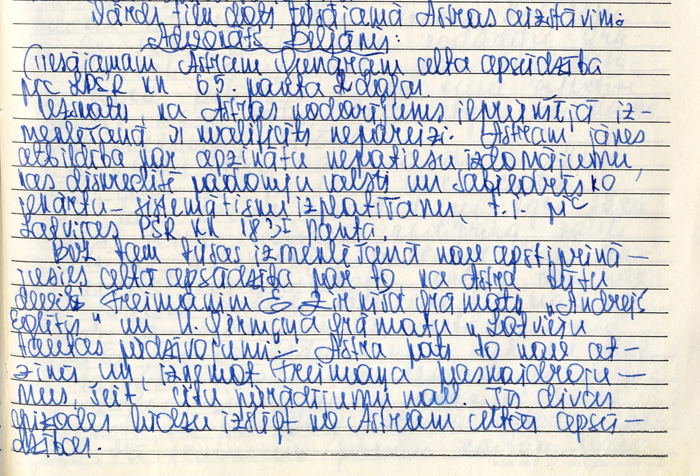 Vārds tiek dots tiesājamā Astras aizstāvim:
Advokāts
Tiesājamam Astram celta apsūdzība
pēc LPSR KK 65. panta 2 daļas.
Uzskatu, ka Astras nodarījums iepriekšējā iz-
meklēšanā ir kvalificēts nepareizi. Astram jānes
atbildība par apzināti nepatiesu izdomājumu,
kas diskreditē padomju valsti un sabiedrisko
iekārtu – sistemātisku izplatīšanu, t.i. pēc
Latvijas PSR KK 183¹ panta.
Bez tam tiesas izmeklēšanā nav apstiprinā-
jusies celtā apsūdzība par to, ka Astra būtu
devis Freimanim Ē. grāmatu „Andrejs
Eglītis" un U. Ģērmaņa grāmatu „Latviešu
tautas piedzīvojumi". Astra pats to nav at-
zinis un, izņemot Freimaņa paskaidroju-
mus, šeit citu pierādījumu nav. Šīs divas
epizodes lūdzu izslēgt no Astram celtās apsū-
dzības.